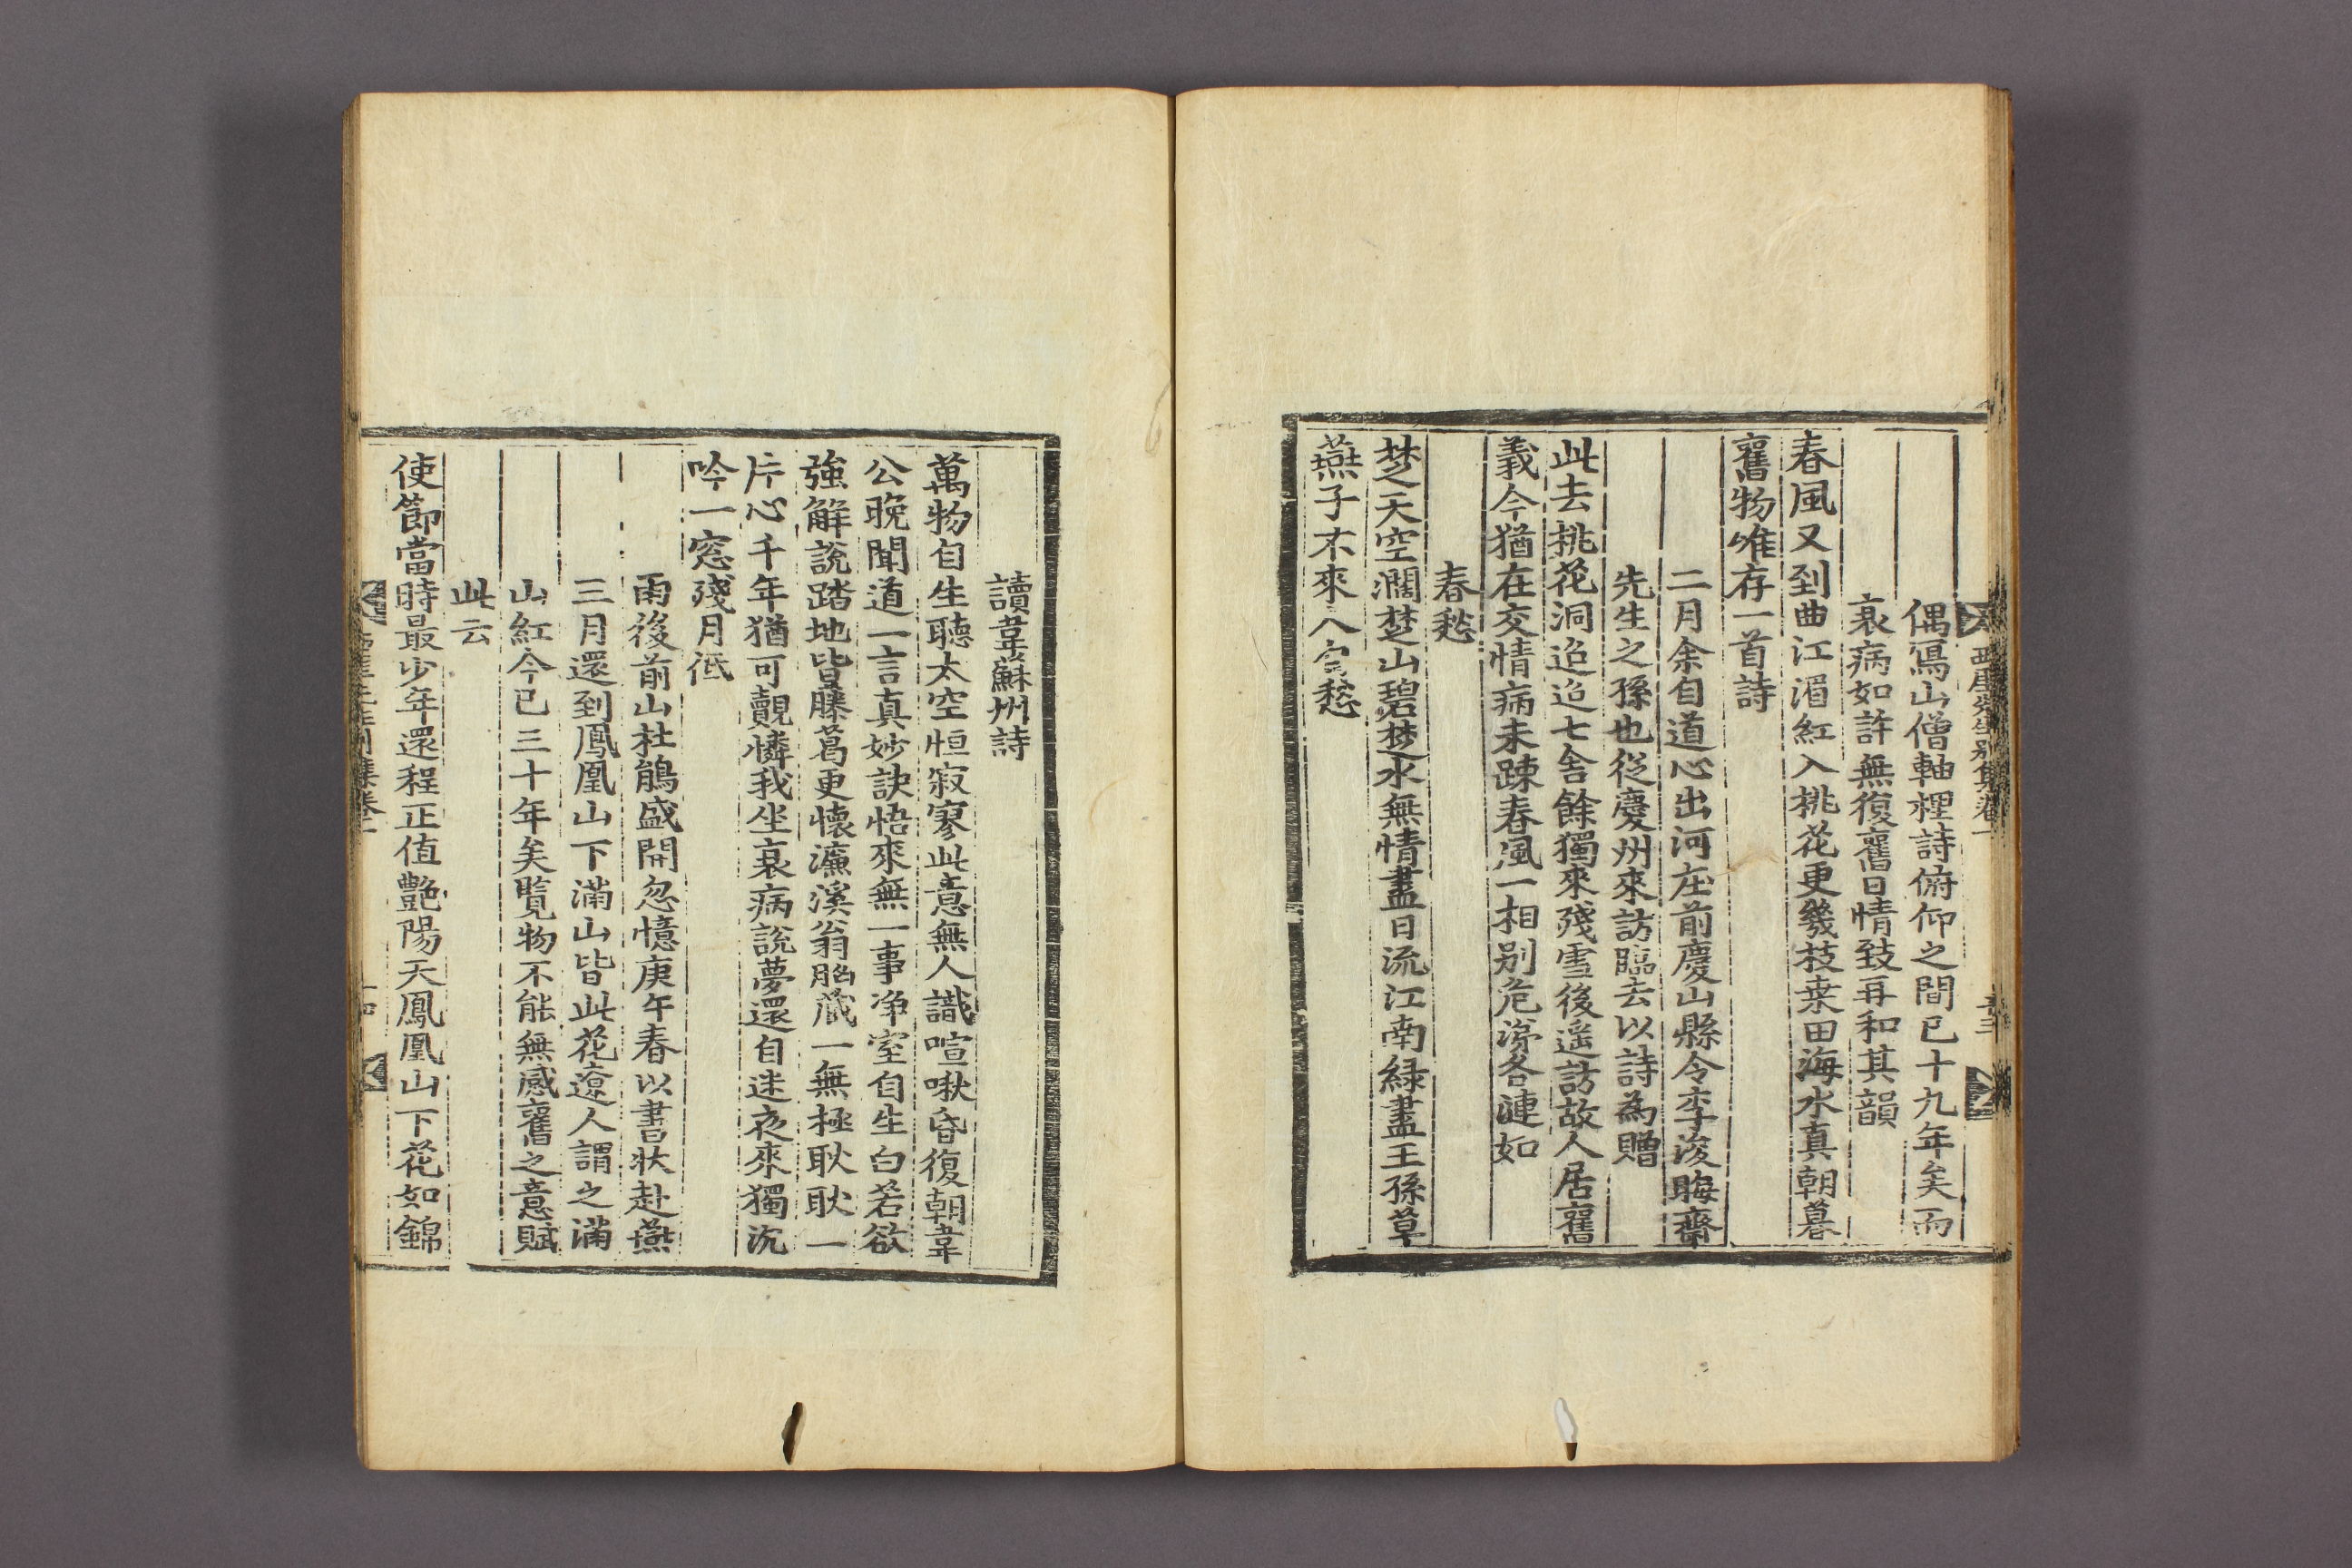 西厓先生別集卷一
偶寫山僧軸裡詩俯仰之間已十九年矣而
衰病如許無復舊日情致再和其韻
春風又到曲江湄紅入桃花更幾枝桒田海水真朝暮
舊物唯存一首詩
二月余自道心出河庄前慶山縣令李浚晦齋
先生之孫也從慶州來訪臨去以詩為贈
此去桃花洞迢迢七舍餘獨來殘雪後遥訪故人居舊
義今猶在交情病未踈春風一相別危涕各漣如
春愁
楚天空濶楚山碧楚水無情盡日流江南綠盡王孫草
燕子不來人自愁
讀韋蘇州詩
萬物自生聽太空恒寂寥此意無人識喧啾昏復朝韋
公晚聞道一言真妙訣悟來無一事淨室自生白若欲
強解說踏地皆藤葛更懷濂溪翁胷藏一無極耿耿一
片心千年猶可覿憐我坐衰病說夢還自迷夜來獨沉
吟一窓殘月低
雨後前山杜鵑盛開忽憶庚午春以書狀赴燕
三月還到鳳凰山下滿山皆此花遼人謂之滿
山紅今已三十年矣覽物不能無感舊之意賦
此云
使節當時最少年還程正值艶陽天鳳凰山下花如錦